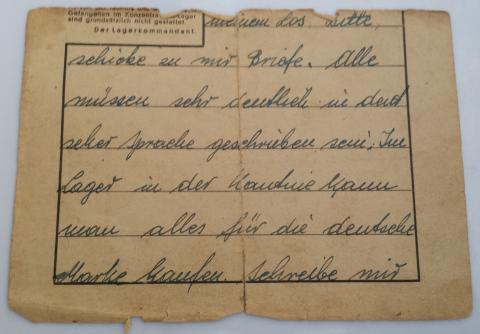 Gefangenen im Konzentrat Lager
sind grundsätzlich nicht gestattet.
Der Lagerkommandant.
meinem Los. Bitte,
schicke zu mir Briefe. Alle
müssen sehr deutlich in deut
scher Sprache geschrieben sein, Im
Lager in der Kantine kann
man alles für die deutsche
Marke kaufen. Schreibe mir